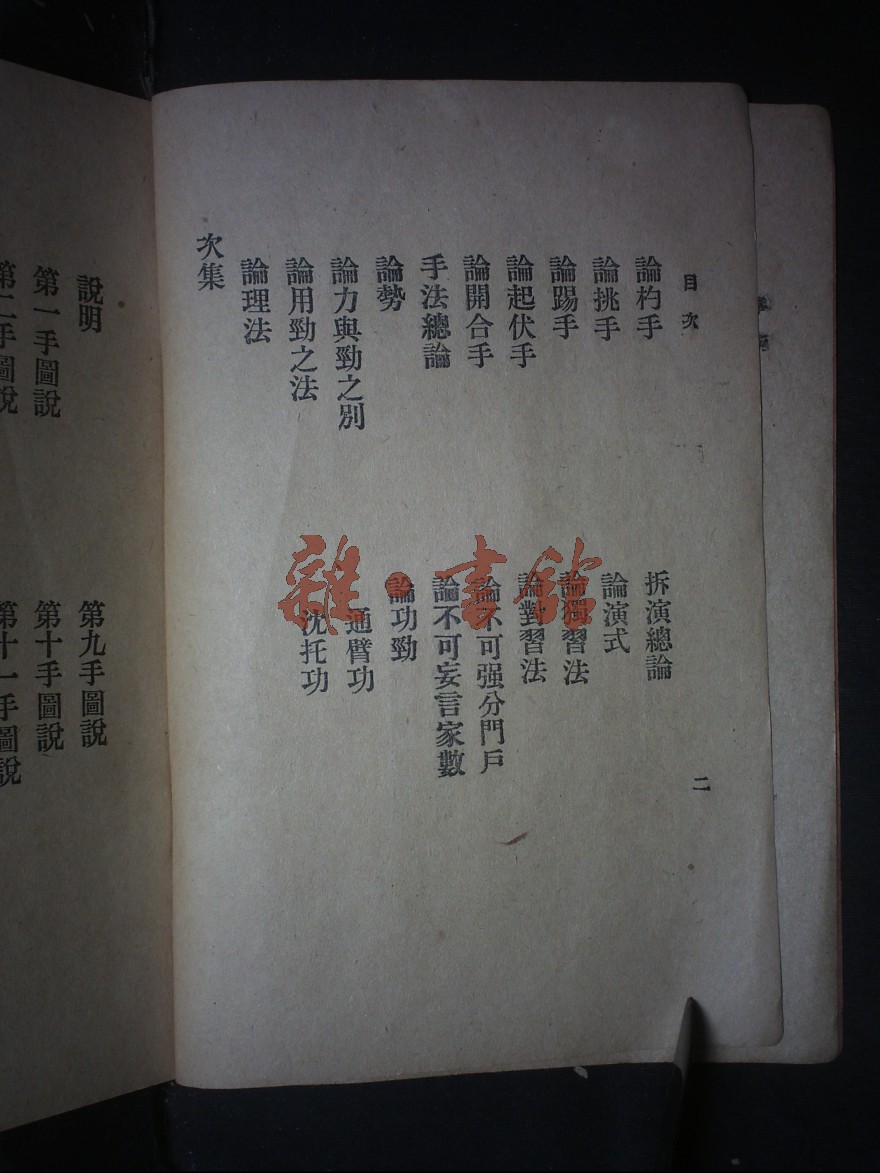 目次
論杓手
論挑手
論踢手
論起伏手
論開合手
手法總論
論勢
論力與勁之別
論用勁之法
論理法
拆演總論
論演式
論獨習法
論對習法
論不可强分門戶
論不可妄言家數
論功勁
通臂功
沈托功
次集
二
說明
第一手圖說
第二手圖說
第九手圖說
第十手圖說
第十一手圖說
雜·書館